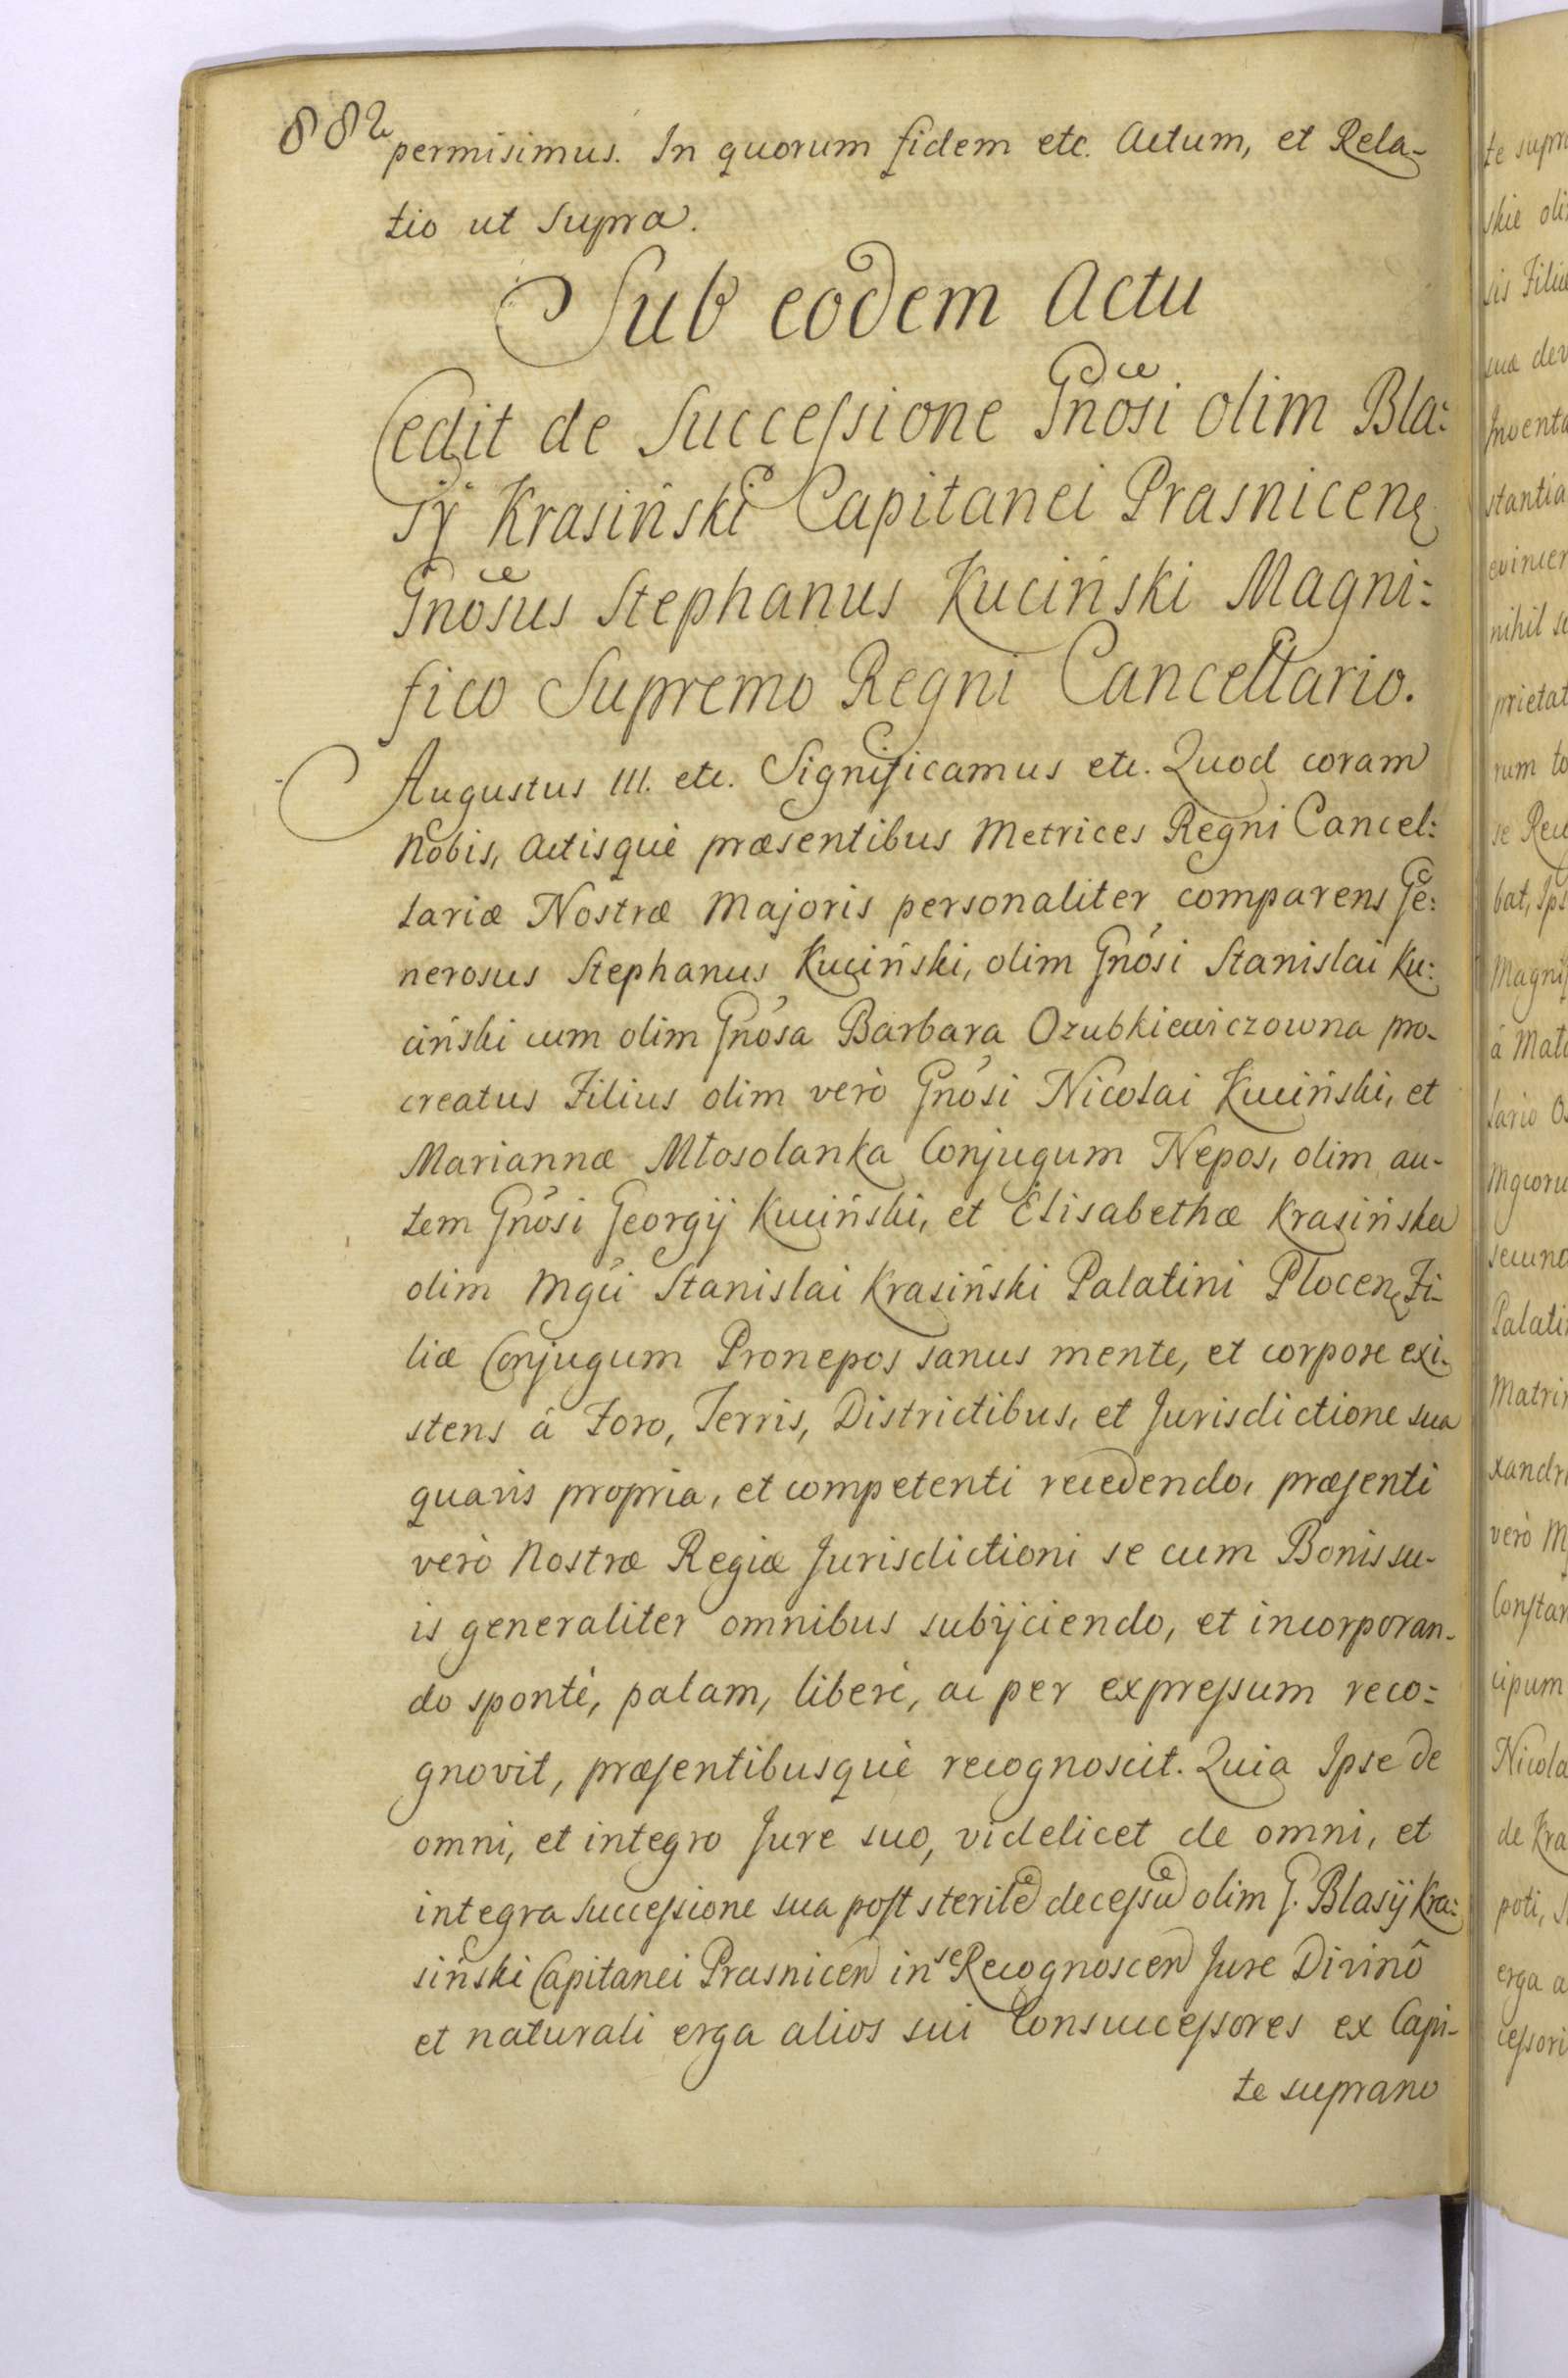 882
permisimus. In quorum fidem etc. Actum, et Rela-
tio ut Supra.
Sub eodem Actu
Cedit de Successione Gnosi olim Bla:
sij Krasiński Capitanei Prasnicen
Gnosus Stephanus Kuciński Magni:
fico Supremo Regni Cancellario.
Augustus III. etc. Significamus etc. Quod coram
Nobis, Actisquè præsentibus Metrices Regni Cancel:
lariæ Nostræ Majoris personaliter comparens Ge:
nerosus Stephanus Kuciński, olim Gnosi Stanislai Ku:
ciński cum olim Gnosa Barbara Ozubkiewiczowna pro-
creatus Filius olim verò Gnosi Nicolai Kuciński, et
Mariannæ Młosolanka Conjugum Nepos, olim au-
tem Gnosi Georgij Kuciński, et Elisabethæ Krasińska
olim Mgci Stanislai Krasiński Palatini Plocen Fi-
liæ Conjugum Pronepos sanus mente, et corpore exi-
stens à Foro, Terris, Districtibus, et Jurisdictione sua
quavis propria, et competenti recedendo, præsenti
verò Nostræ Regiæ Jurisdictioni se cum Bonis su-
is generaliter omnibus subijciendo, et incorporan-
do spontè, palam, liberè, ac per expressum reco=
gnovit, præsentibusquè recognoscit. Quia Ipse de
omni, et integro Jure suo, videlicet de omni, et
integra successione sua post sterilē decessū olim G. Blasij Kra:
siński Capitanei Prasnicen in se Recognoscen Jure Divinô
et naturali erga alios sui Consuccessores ex Capi-
te suprano
te supra
skie oli
sis Filiæ
suæ dev
Inventa
stantia
evincer
nihil se
prietat
rum to
se Rec
bat, Ips
Magnif
à Mat
lario
Mgcoru
secund
Palati
Matri
xandr
verò M
Constan
cipum
Nicola
de Kra
poti, s
erga a
cessori